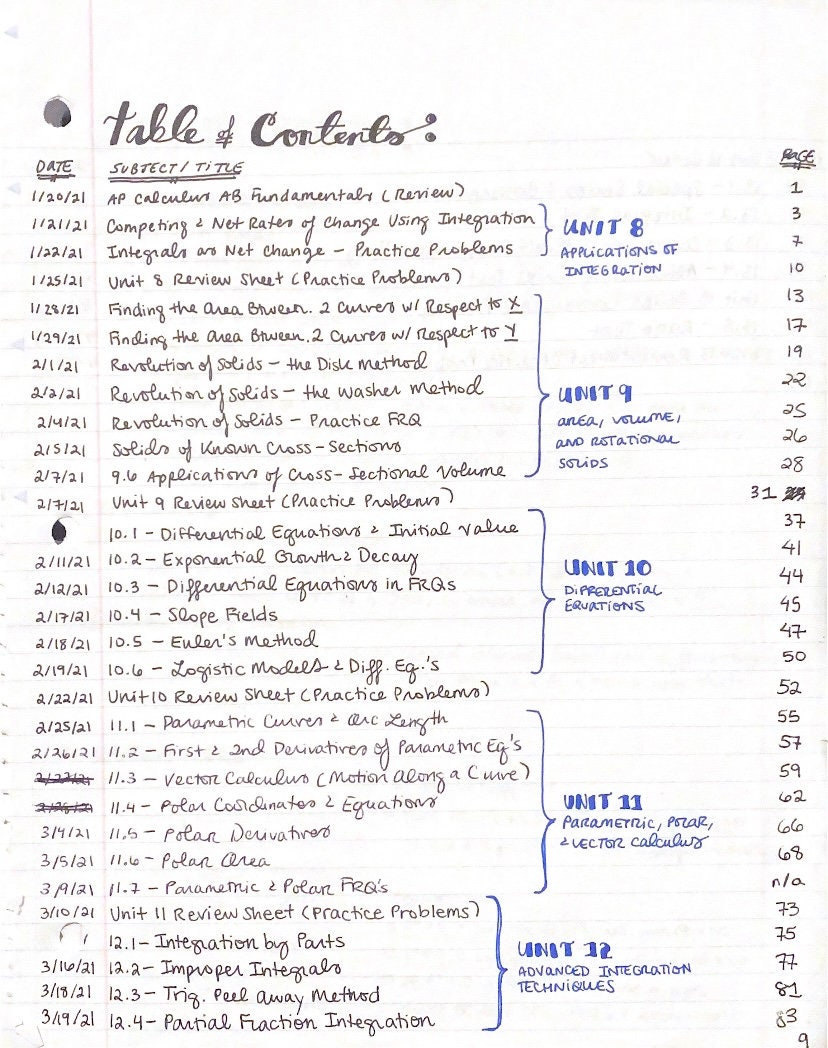 Table of Contents:
DATE SUBJECT/TITLE PAGE
1/20/21 AP Calculus AB Fundamentals (Review) 1
1/21/21 Competing & Net Rates of Change Using Integration 3
UNIT 8
1/22/21 Integrals as Net Change - Practice Problems 7
APPLICATIONS OF
INTEGRATION
1/25/21 Unit 8 Review Sheet (Practice Problems) 10
1/28/21 Finding the Area Btween. 2 Curves w/ Respect to X 13
1/29/21 Finding the Area Btween. 2 Curves w/ Respect to Y 17
2/1/21 Revolution of Solids - the Disk Method 19
2/2/21 Revolution of Solids - the Washer Method 22
UNIT 9
2/4/21 Revolution of Solids - Practice FRQ 25
AREA, VOLUME,
AND ROTATIONAL
SOLIDS
2/5/21 Solids of Known Cross-Sections 26
2/7/21 9.6 Applications of Cross-Sectional Volume 28
2/7/21 Unit 9 Review Sheet (Practice Problems) 31
10.1 - Differential Equations & Initial Value 37
2/11/21 10.2 - Exponential Growth & Decay 41
UNIT 10
2/12/21 10.3 - Differential Equations in FRQs 44
DIFFERENTIAL
EQUATIONS
2/17/21 10.4 - Slope Fields 45
2/18/21 10.5 - Euler's Method 47
2/19/21 10.6 - Logistic Models & Diff. Eq.'s 50
2/22/21 Unit 10 Review Sheet (Practice Problems) 52
2/25/21 11.1 - Parametric Curves & Arc Length 55
2/26/21 11.2 - First & 2nd Derivatives of Parametric Eq's 57
11.3 - Vector Calculus (Motion Along a Curve) 59
11.4 - Polar Coordinates & Equations 62
UNIT 11
PARAMETRIC, POLAR,
& VECTOR Calculus
3/4/21 11.5 - Polar Derivatives 66
3/5/21 11.6 - Polar Area 68
3/9/21 11.7 - Parametric & Polar FRQ's n/a
3/10/21 Unit 11 Review Sheet (Practice Problems) 73
12.1 - Integration by Parts 75
UNIT 12
ADVANCED INTEGRATION
TECHNIQUES
3/16/21 12.2 - Improper Integrals 77
3/18/21 12.3 - Trig. Peel away Method 81
3/19/21 12.4 - Partial Fraction Integration 83
9